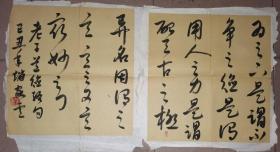 為之下是謂不
爭之德是謂
用人之力是謂
配天古之極
異名同謂之
玄玄之又玄
衆妙之門
老子道德經句
己丑年